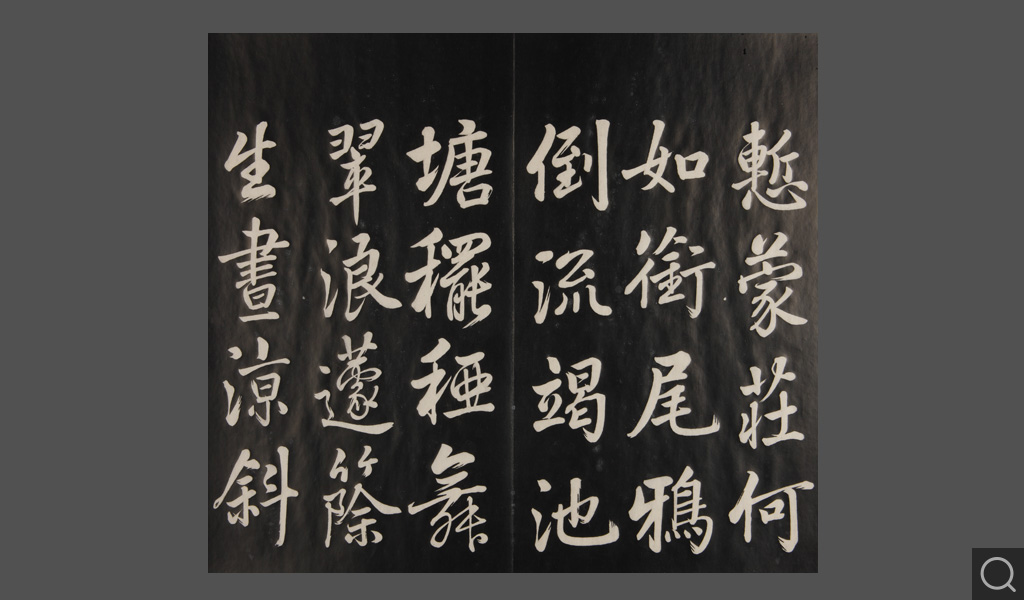 慙蒙莊何
如銜尾鴉
倒流竭池
塘䆉稏舞
翠浪籧篨
生晝涼斜